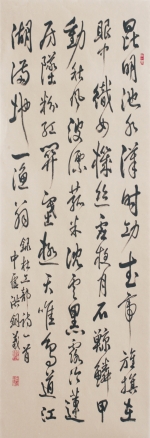 昆明池水漢時功武帝旌旗在
眼中織女機絲虛夜月石鯨鱗甲
動秋風波漂菰米沉雲黑露冷蓮
房墜粉紅關塞極天唯鳥道江
湖滿地一漁翁
錄杜工部詩首